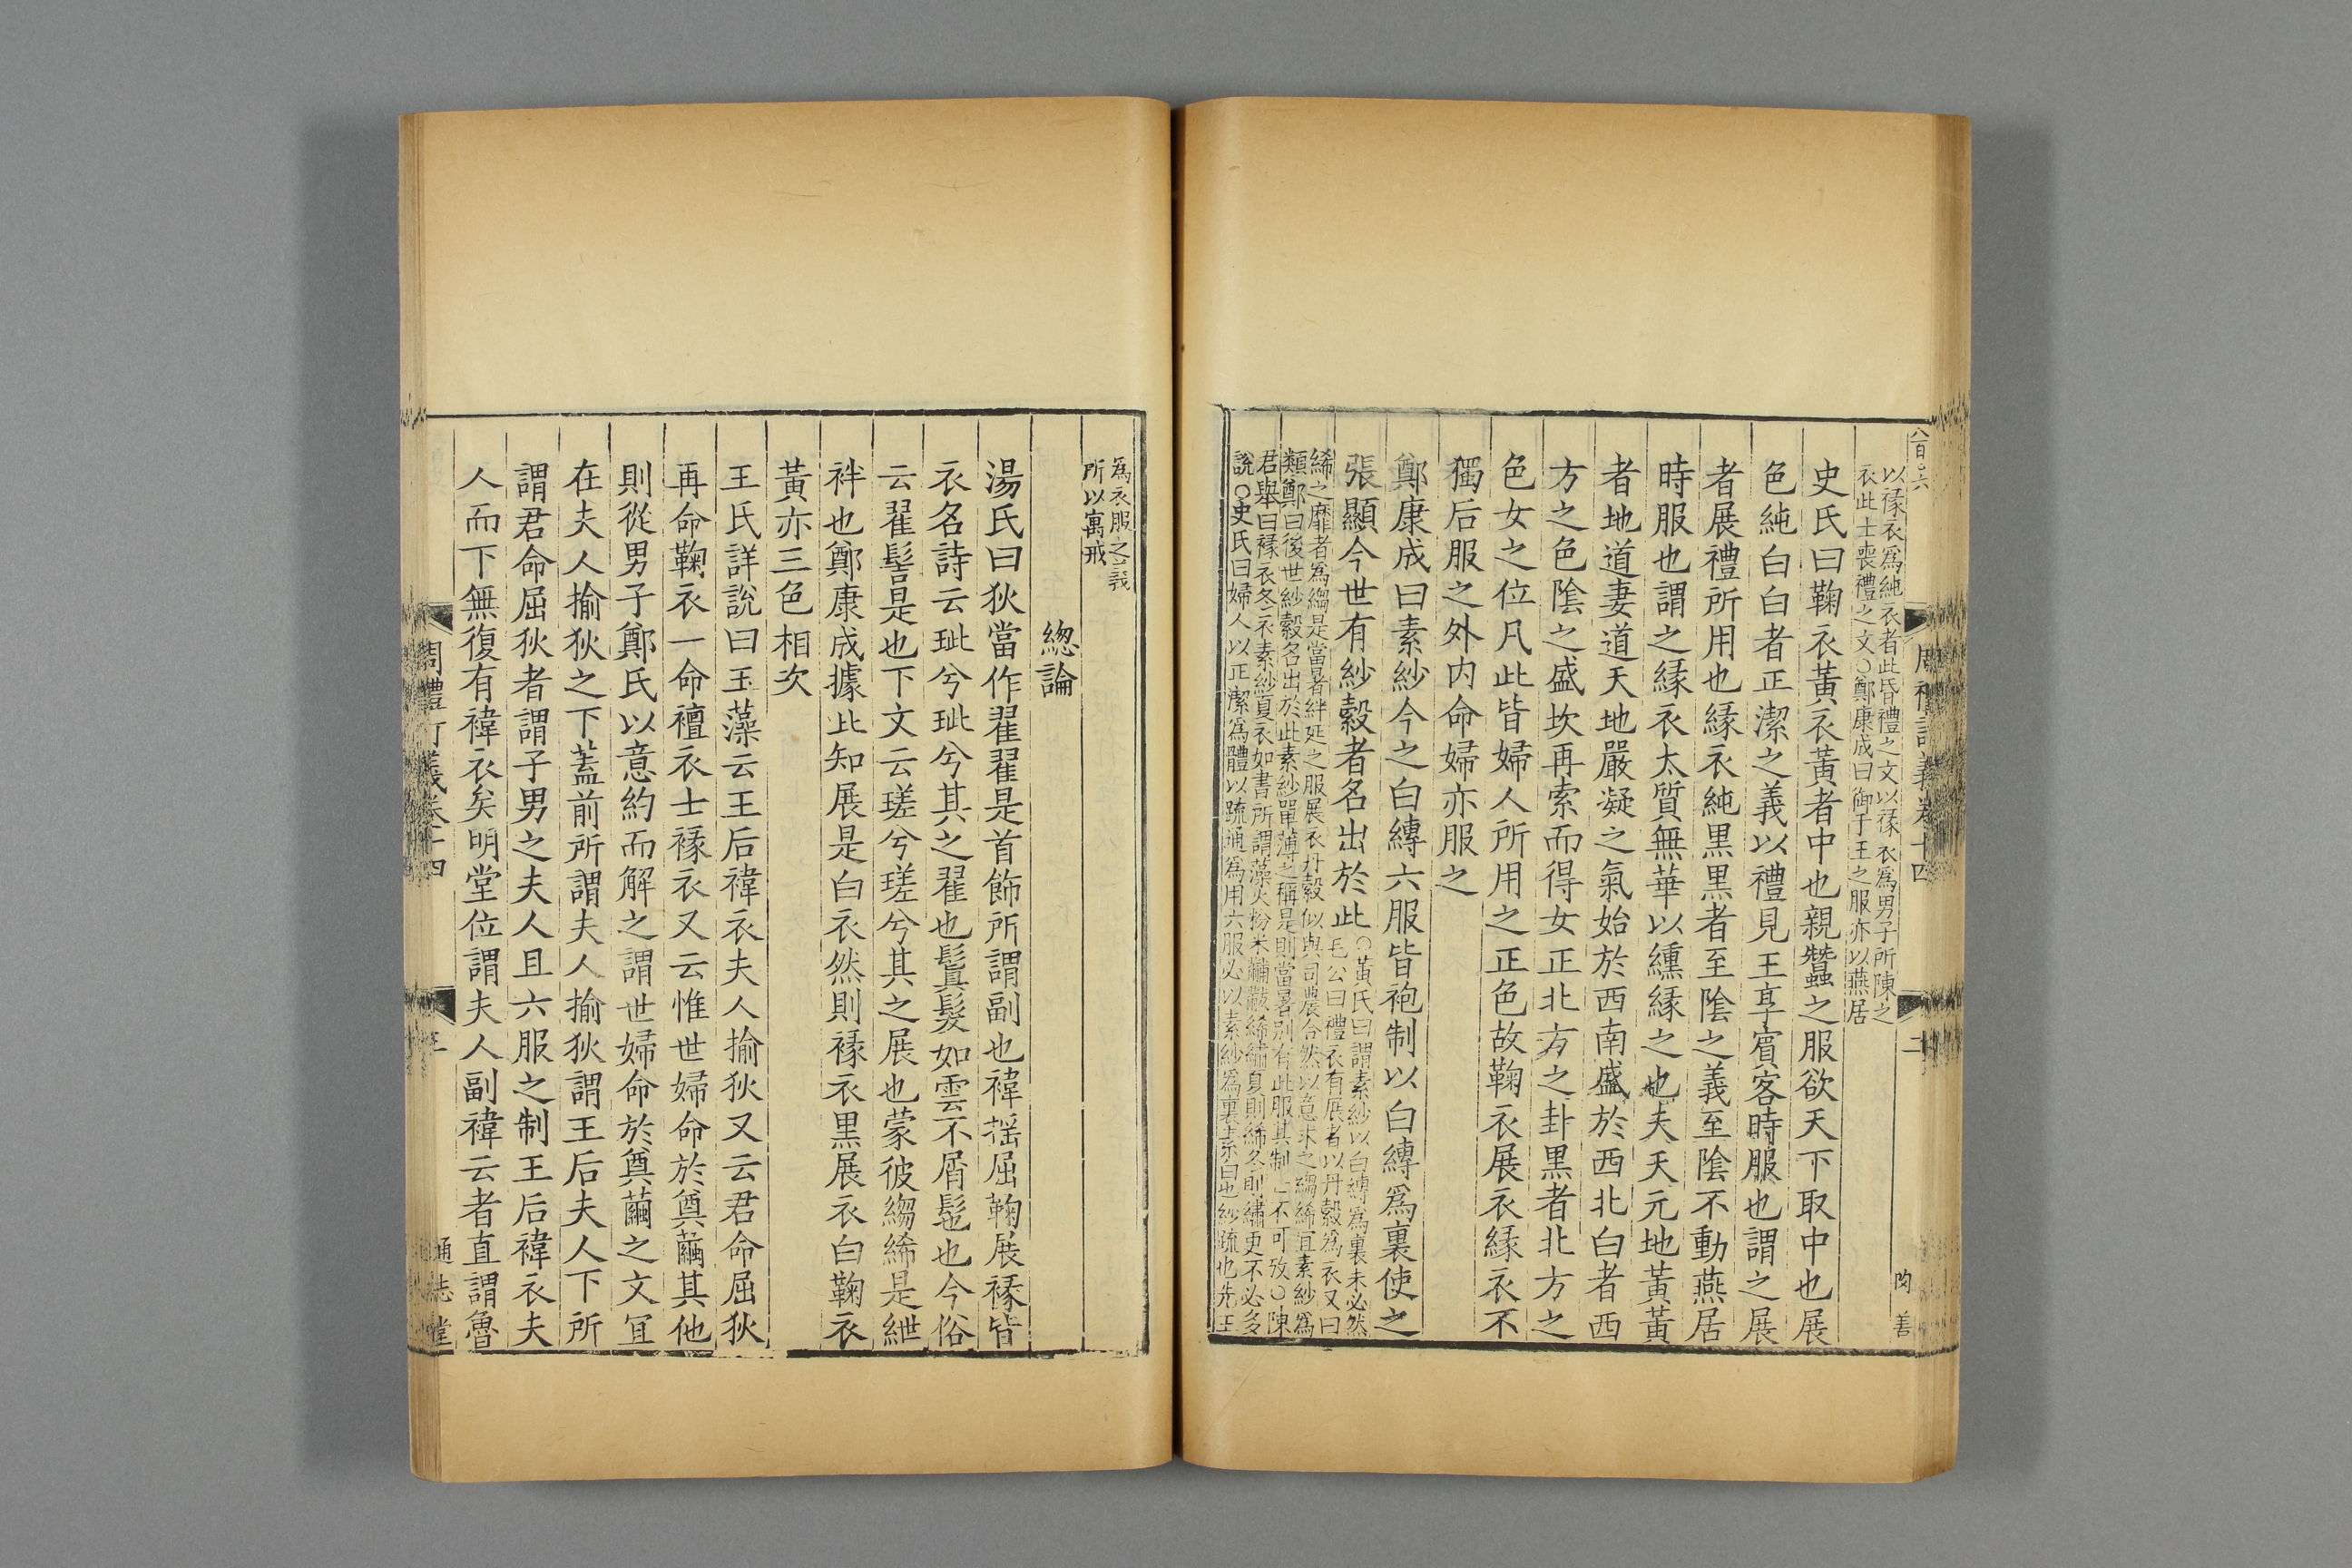 八百六
周禮訂義卷十四
二
以褖衣爲純衣者此昏禮之文以褖衣爲男子所陳之
衣此士喪禮之文○鄭康成曰御于王之服亦以燕居
史氏曰鞠衣黃衣黃者中也親蠶之服欲天下取中也展
色純白白者正潔之義以禮見王享賓客時服也謂之展
者展禮所用也緣衣純黑黑者至陰之義至陰不動燕居
時服也謂之緣衣太質無華以纁緣之也夫天元地黃黃
者地道妻道天地嚴凝之氣始於西南盛於西北白者西
方之色陰之盛坎再索而得女正北方之卦黑者北方之
色女之位凡此皆婦人所用之正色故鞠衣展衣緣衣不
獨后服之外内命婦亦服之
鄭康成曰素紗今之白縳六服皆袍制以白縳爲裏使之
張顯今世有紗縠者名出於此
○黃氏曰謂素紗以白縳爲裏未必然
毛公曰禮衣有展者以丹縠爲衣又曰
絺之靡者爲縐是當暑絆延之服展衣丹縠似與司農合然以意求之縐絺宜素紗爲
類鄭曰後世紗縠名出於此素紗單薄之稱是則當暑別有此服其制亡不可攷○陳
君舉曰褖衣冬衣素紗夏衣如書所謂藻火粉米黼黻絺繡夏則絺冬則繡更不必多
說○史氏曰婦人以正潔爲體以疏通爲用六服必以素紗爲裏素白也紗疏也先王
爲衣服之義
所以寓戒
緫論
湯氏曰狄當作翟翟是首飾所謂副也褘揺屈鞠展褖皆
衣名詩云玼兮玼兮其之翟也鬒髮如雲不屑髢也今俗
云翟髻是也下文云瑳兮瑳兮其之展也蒙彼縐絺是紲
袢也鄭康成據此知展是白衣然則褖衣黒展衣白鞠衣
黃亦三色相次
王氏詳說曰玉藻云王后褘衣夫人揄狄又云君命屈狄
再命鞠衣一命襢衣士褖衣又云惟世婦命於奠繭其他
則從男子鄭氏以意約而解之謂世婦命於奠繭之文宜
在夫人揄狄之下蓋前所謂夫人揄狄謂王后夫人下所
謂君命屈狄者謂子男之夫人且六服之制王后褘衣夫
人而下無復有褘衣矣明堂位謂夫人副褘云者直謂魯
周禮訂義卷十四
三
通志堂